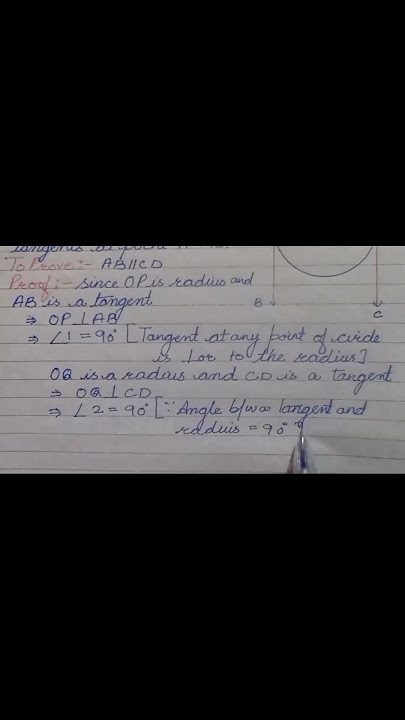 tangents at point
To Prove:- AB||CD
Proof:- since OP is radius and
AB is a tangent
⇒ OP⊥AB
⇒ ∠1 = 90° [Tangent at any point of circle
is ⊥or to the radius]
OQ is a radius and CD is a tangent
⇒ OQ⊥CD
⇒ ∠2 = 90° [∵ Angle b/w tangent and
raduis = 90°
B
C